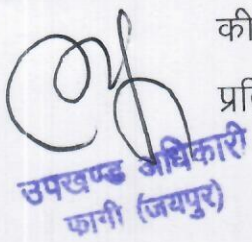 की
प्रि
उपखण्ड अधिकारी
फागी (जयपुर)